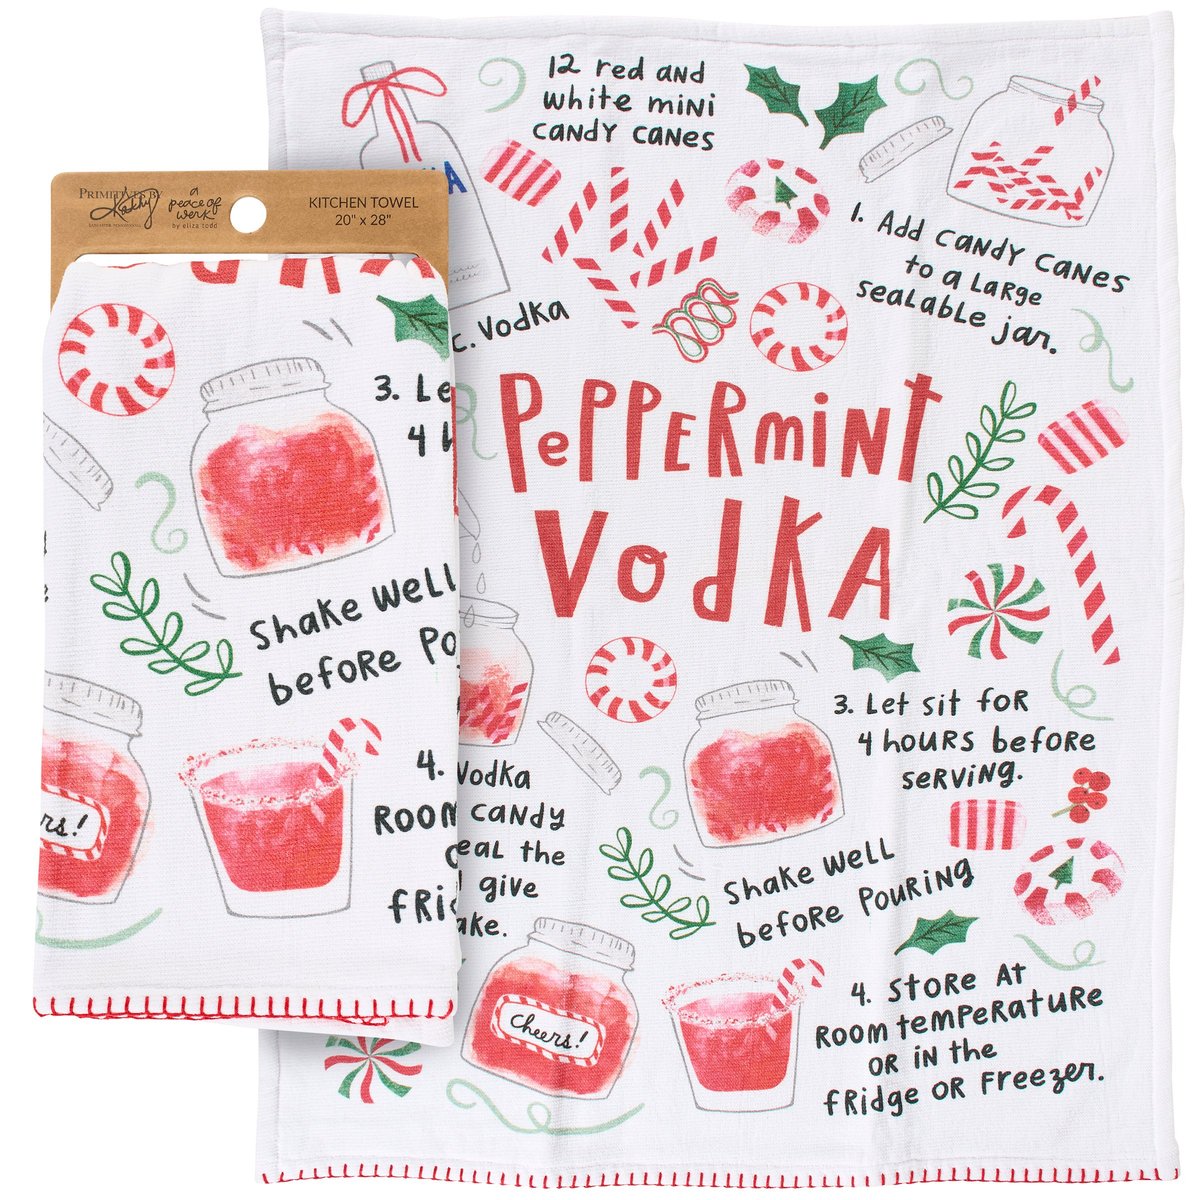 PRIMITIVES BY
Kathy
a
peace of
work
by eliza todd
KITCHEN TOWEL
20" x 28"
3. Le
4 h
Shake well
before Po
rs!
4.
ROOM
fRig
12 red and
white mini
candy canes
KA
c. Vodka
1. Add candy canes
to a large
sealable jar.
PEPPERMINT
VODKA
3. Let sit for
4 hours before
serving.
Vodka
candy
eal the
give
ake.
Shake well
before pouring
Cheers!
4. Store at
room temperature
or in the
fridge or freezer.